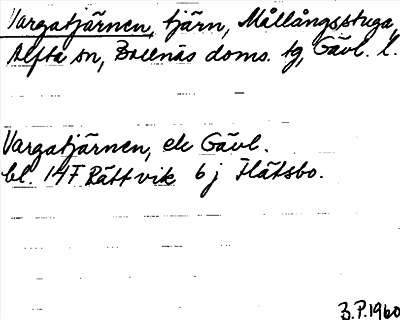 Vargatjärnen, tjärn, Mållångsstuga,
Alfta sn, Bollnäs doms. tg, Gävl. l.
Vargatjärnen, ek Gävl.
bl. 14F Rättvik 6 j Flätsbo.
B.P.1960